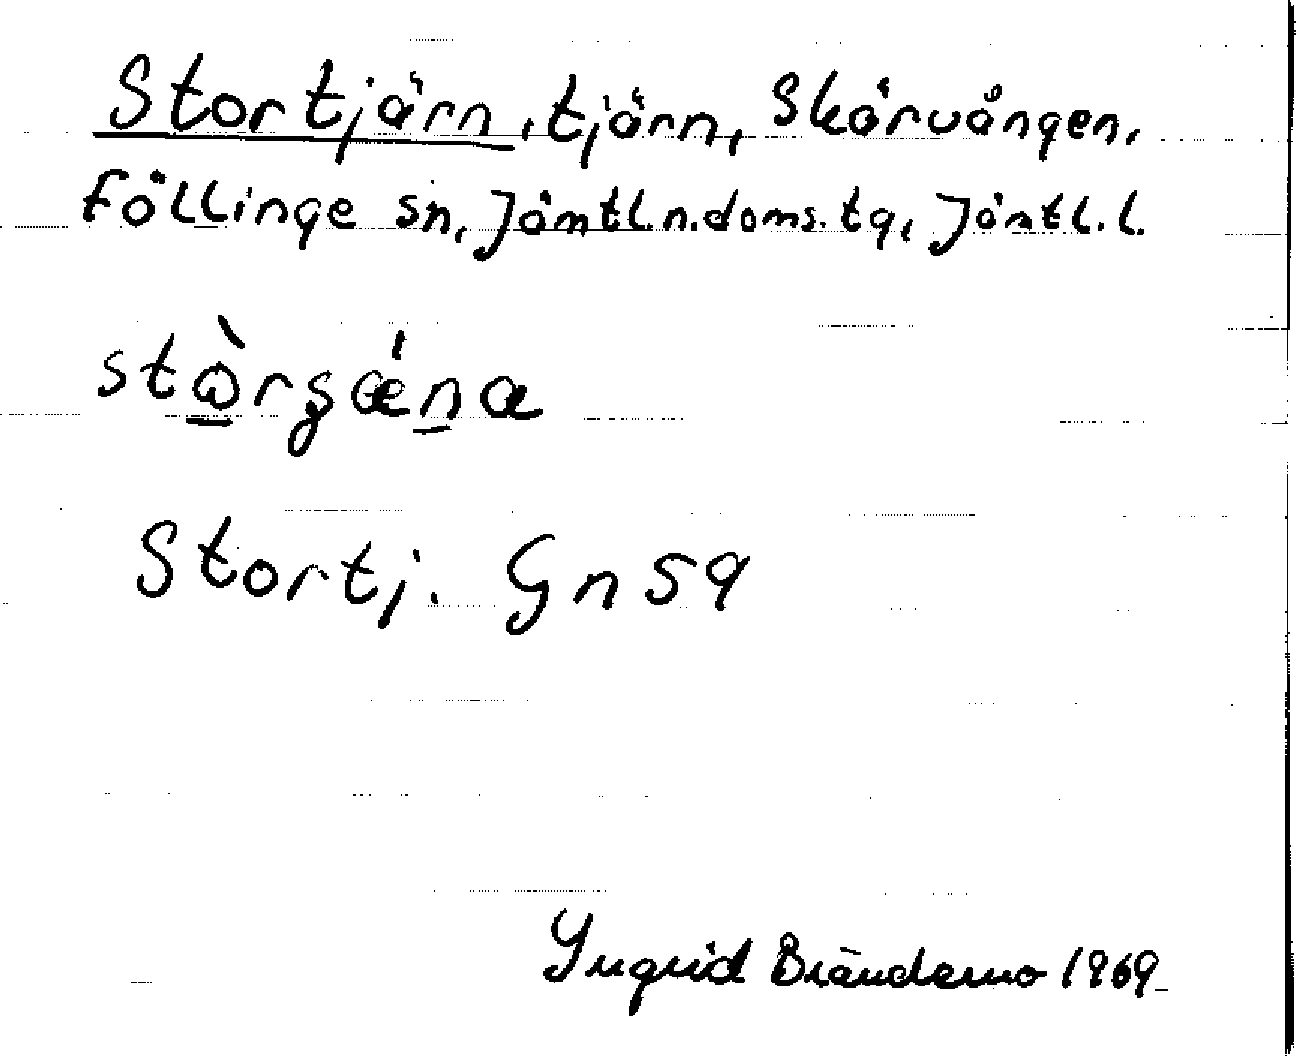 Stortjärn, tjärn, Skärvången,
Föllinge sn, Jämtl.n.doms.tg, Jämtl.l.
Stortj. Gn 59
Ingrid Brändemo 1969